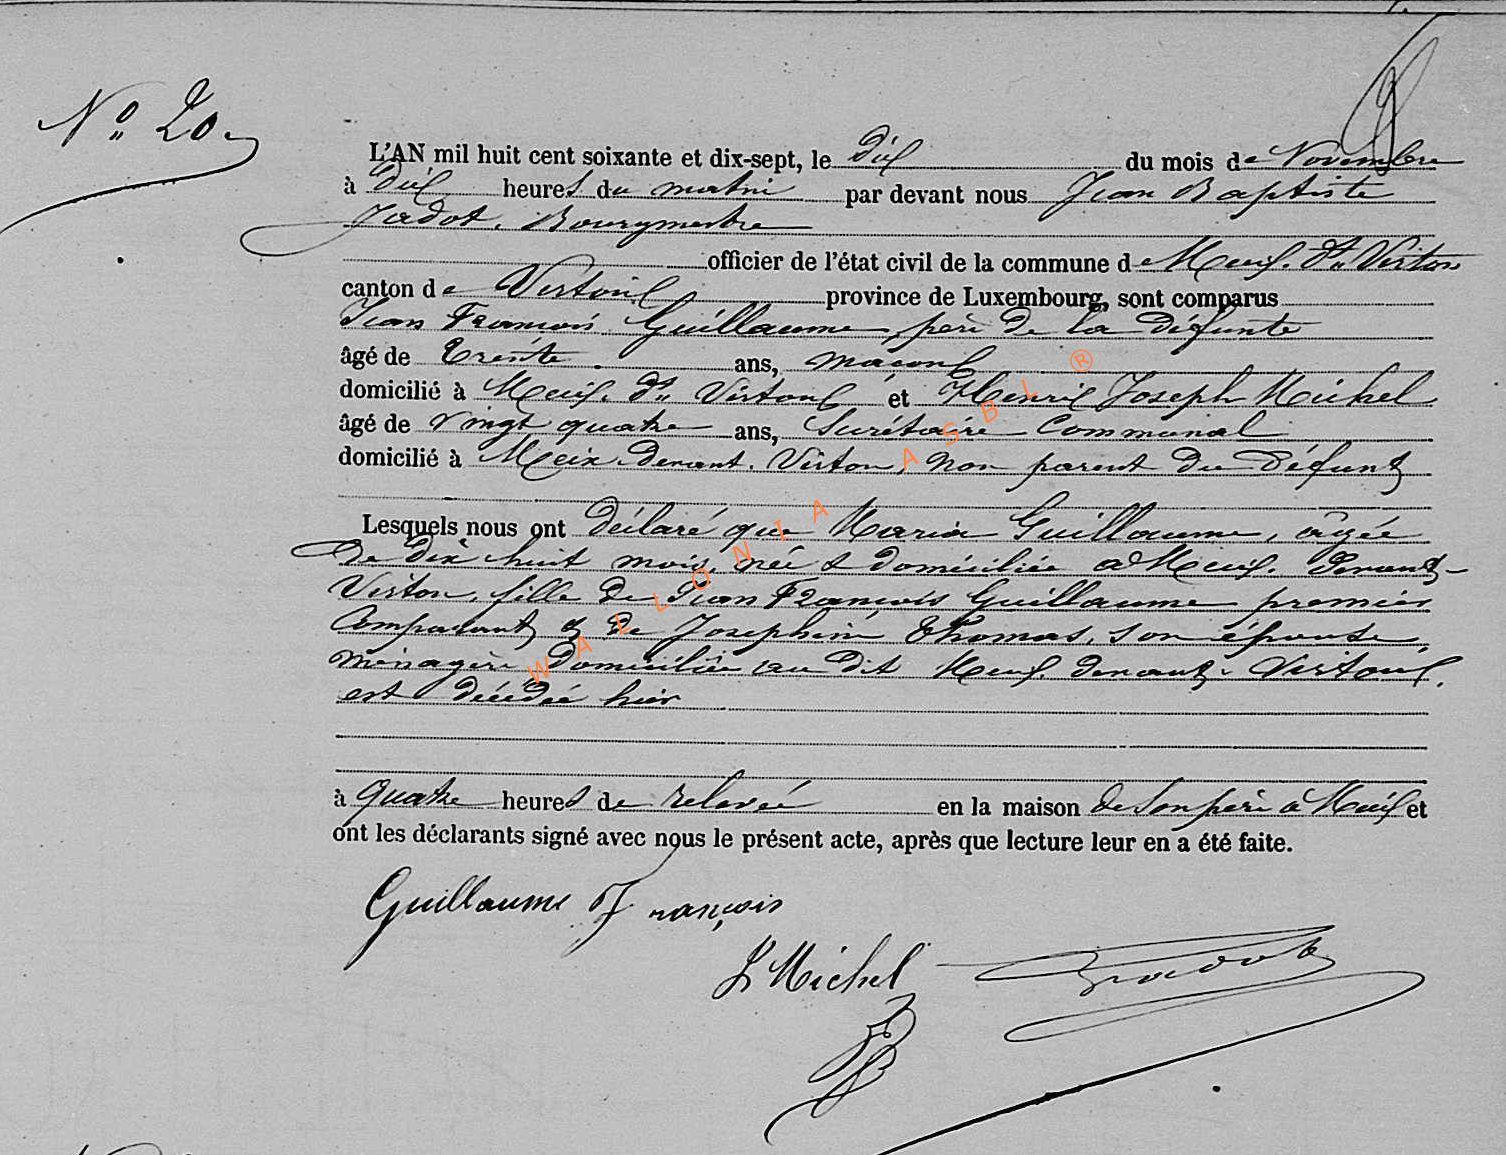 N° 20
L'AN mil huit cent soixante et dix-sept, le dix du mois de Novembre
à dix heures du matin par devant nous Jean Baptiste
Jadot, Bourgmestre
officier de l'état civil de la commune de Meix. dt Virton
canton de Virton province de Luxembourg, sont comparus
Jean François Guillaume, père de la défunte
âgé de trente ans, maçon
domicilié à Meix. dt Virton et Henri Joseph Michel
âgé de vingt quatre ans, Secrétaire Communal
domicilié à Meix-devant-Virton, non parent du défunt
Lesquels nous ont déclaré que Maria Guillaume, âgée
de dix huit mois, née & domiciliée à Meix-devant-
Virton, fille de Jean François Guillaume premier
Comparant & de Josephine Thomas, son épouse
ménagère domiciliée au dit Meix-devant-Virton.
est décédée hier
à quatre heures de relevée en la maison de son père à Meix et
ont les déclarants signé avec nous le présent acte, après que lecture leur en a été faite.
Guillaume François
Michel Jadot
WALLONIA ASBL ®